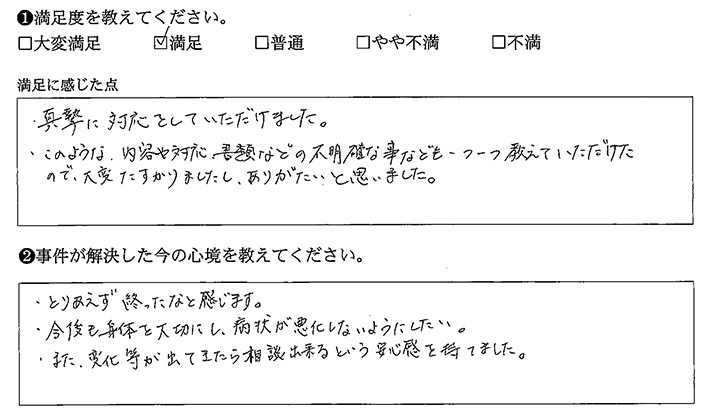 ❶満足度を教えてください。
☐大変満足 ☑満足 ☐普通 ☐やや不満 ☐不満
満足に感じた点
・真摯に対応をしていただけました。
・このような、内容や対応、書類などの不明確な事なども一つ一つ教えていただけた
ので、大変たすかりましたし、ありがたいと思いました。
❷事件が解決した今の心境を教えてください。
・とりあえず終ったなと感じます。
・今後も身体を大切にし、病状が悪化しないようにしたい。
・また、変化等が出てきたら相談出来るという安心感を持てました。